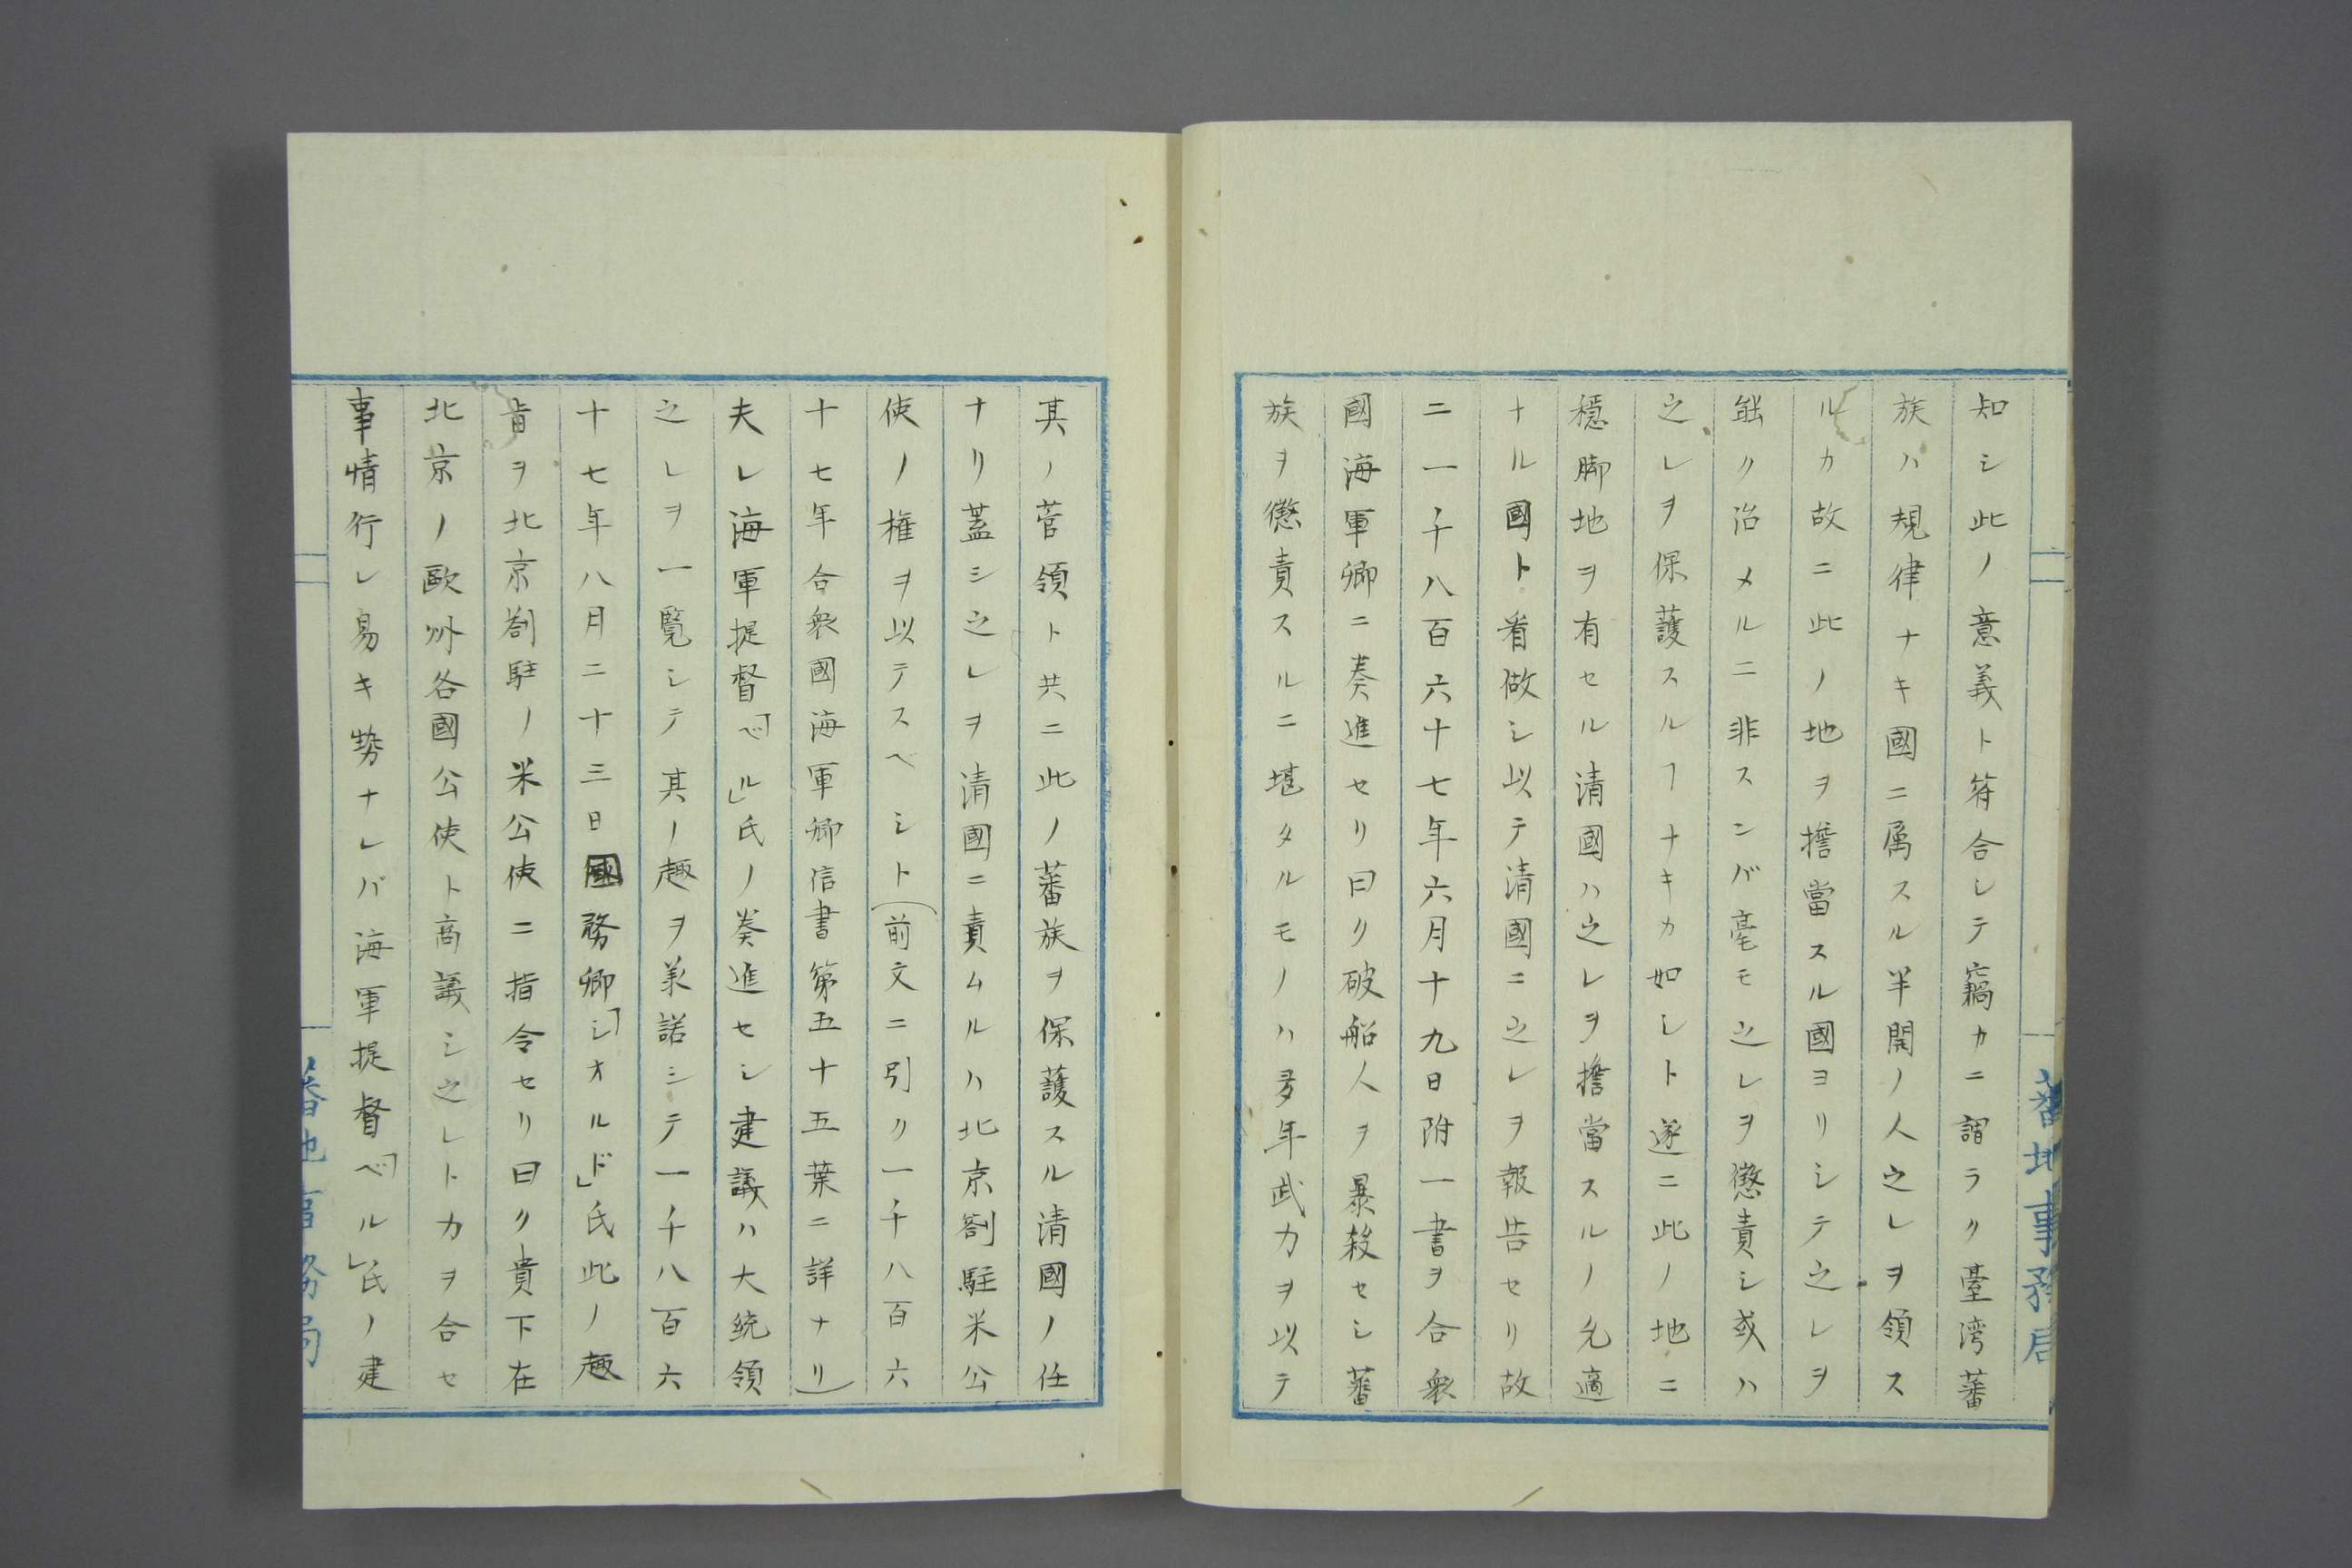 知シ此ノ意義ト符合シテ竊カニ謂ラク臺湾蕃
族ハ規律ナキ國ニ属スル半開ノ人之レヲ領ス
ルカ故ニ此ノ地ヲ擔當スル國ヨリシテ之レヲ
能ク治メルニ非スンバ毫モ之レヲ懲責シ或ハ
之レヲ保護スルヿナキカ如シト遂ニ此ノ地ニ
穏脚地ヲ有セル清國ハ之レヲ擔當スルノ允適
ナル國ト看做シ以テ清國ニ之レヲ報告セリ故
ニ一千八百六十七年六月十九日附一書ヲ合衆
國海軍卿ニ奏進セリ曰ク破船人ヲ暴殺セシ蕃
族ヲ懲責スルニ堪タルモノハ多年武力ヲ以テ
蕃地事務局
其ノ菅領ト共ニ此ノ蕃族ヲ保護スル清國ノ任
ナリ蓋シ之レヲ清國ニ責ムルハ北京劄駐米公
使ノ権ヲ以テスベシト(前文ニ引ク一千八百六
十七年合衆國海軍卿信書第五十五葉ニ詳ナリ)
夫レ海軍提督「ベル」氏ノ奏進セシ建議ハ大統領
之レヲ一覧シテ其ノ趣ヲ承諾シテ一千八百六
十七年八月二十三日國務卿「シオルド」氏此ノ趣
旨ヲ北京劄駐ノ米公使ニ指令セリ曰ク貴下在
北京ノ歐州各國公使ト商議シ之レト力ヲ合セ
事情行レ易キ勢ナレバ海軍提督「ベル」氏ノ建
蕃地事務局